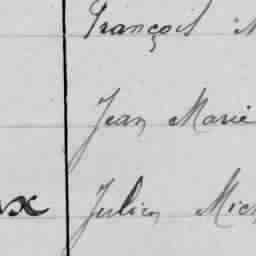 François
Jean Marie
Julien